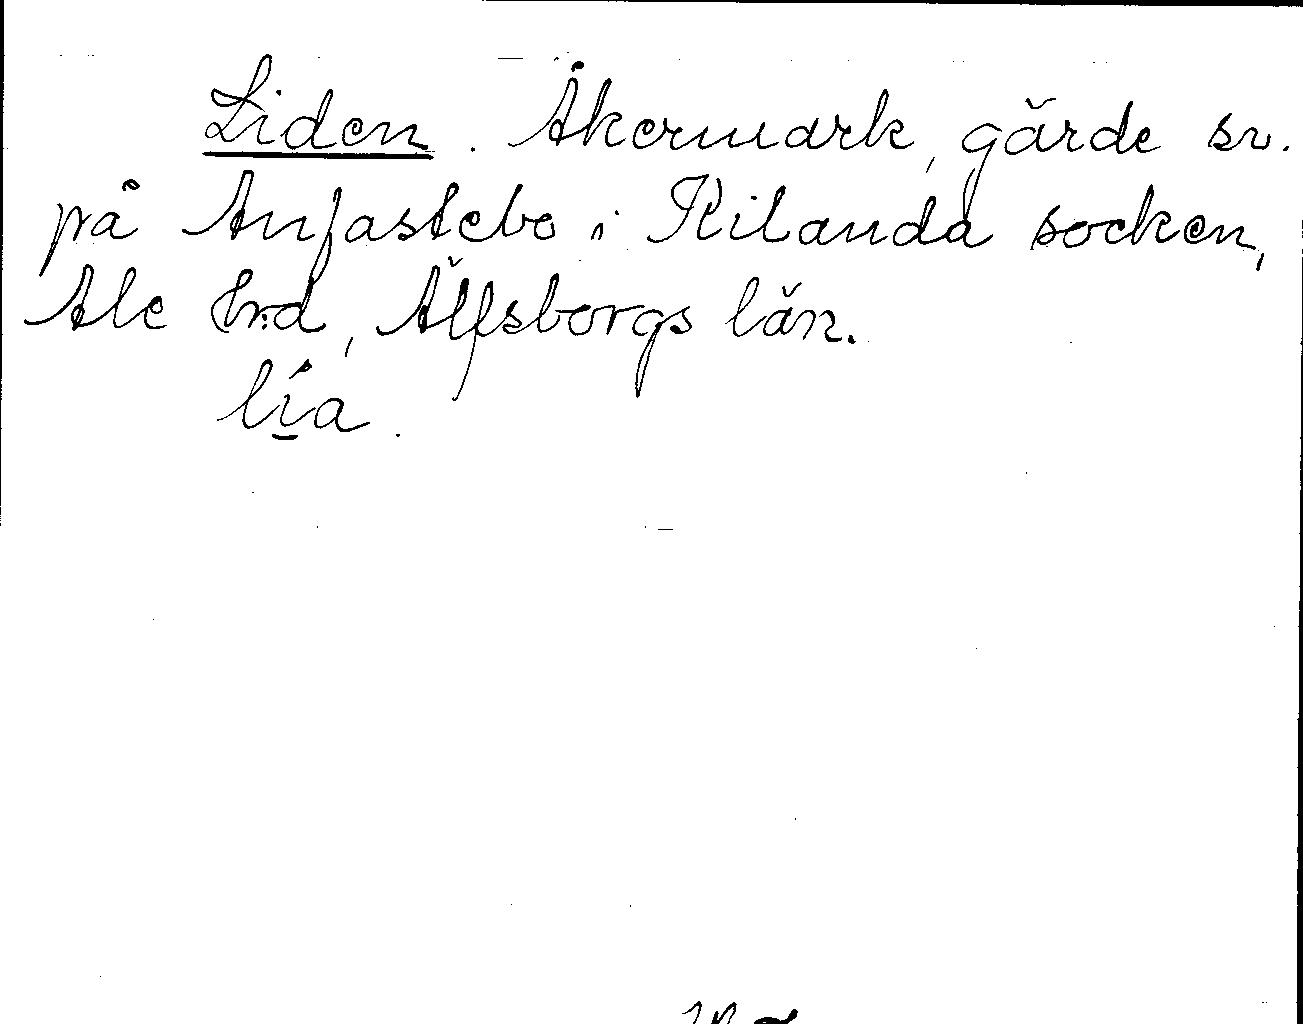 Liden. Åkermark, gärde sv.
på Anfastebo i Kilanda socken,
Ale hrd, Älfsborgs län.
lía.